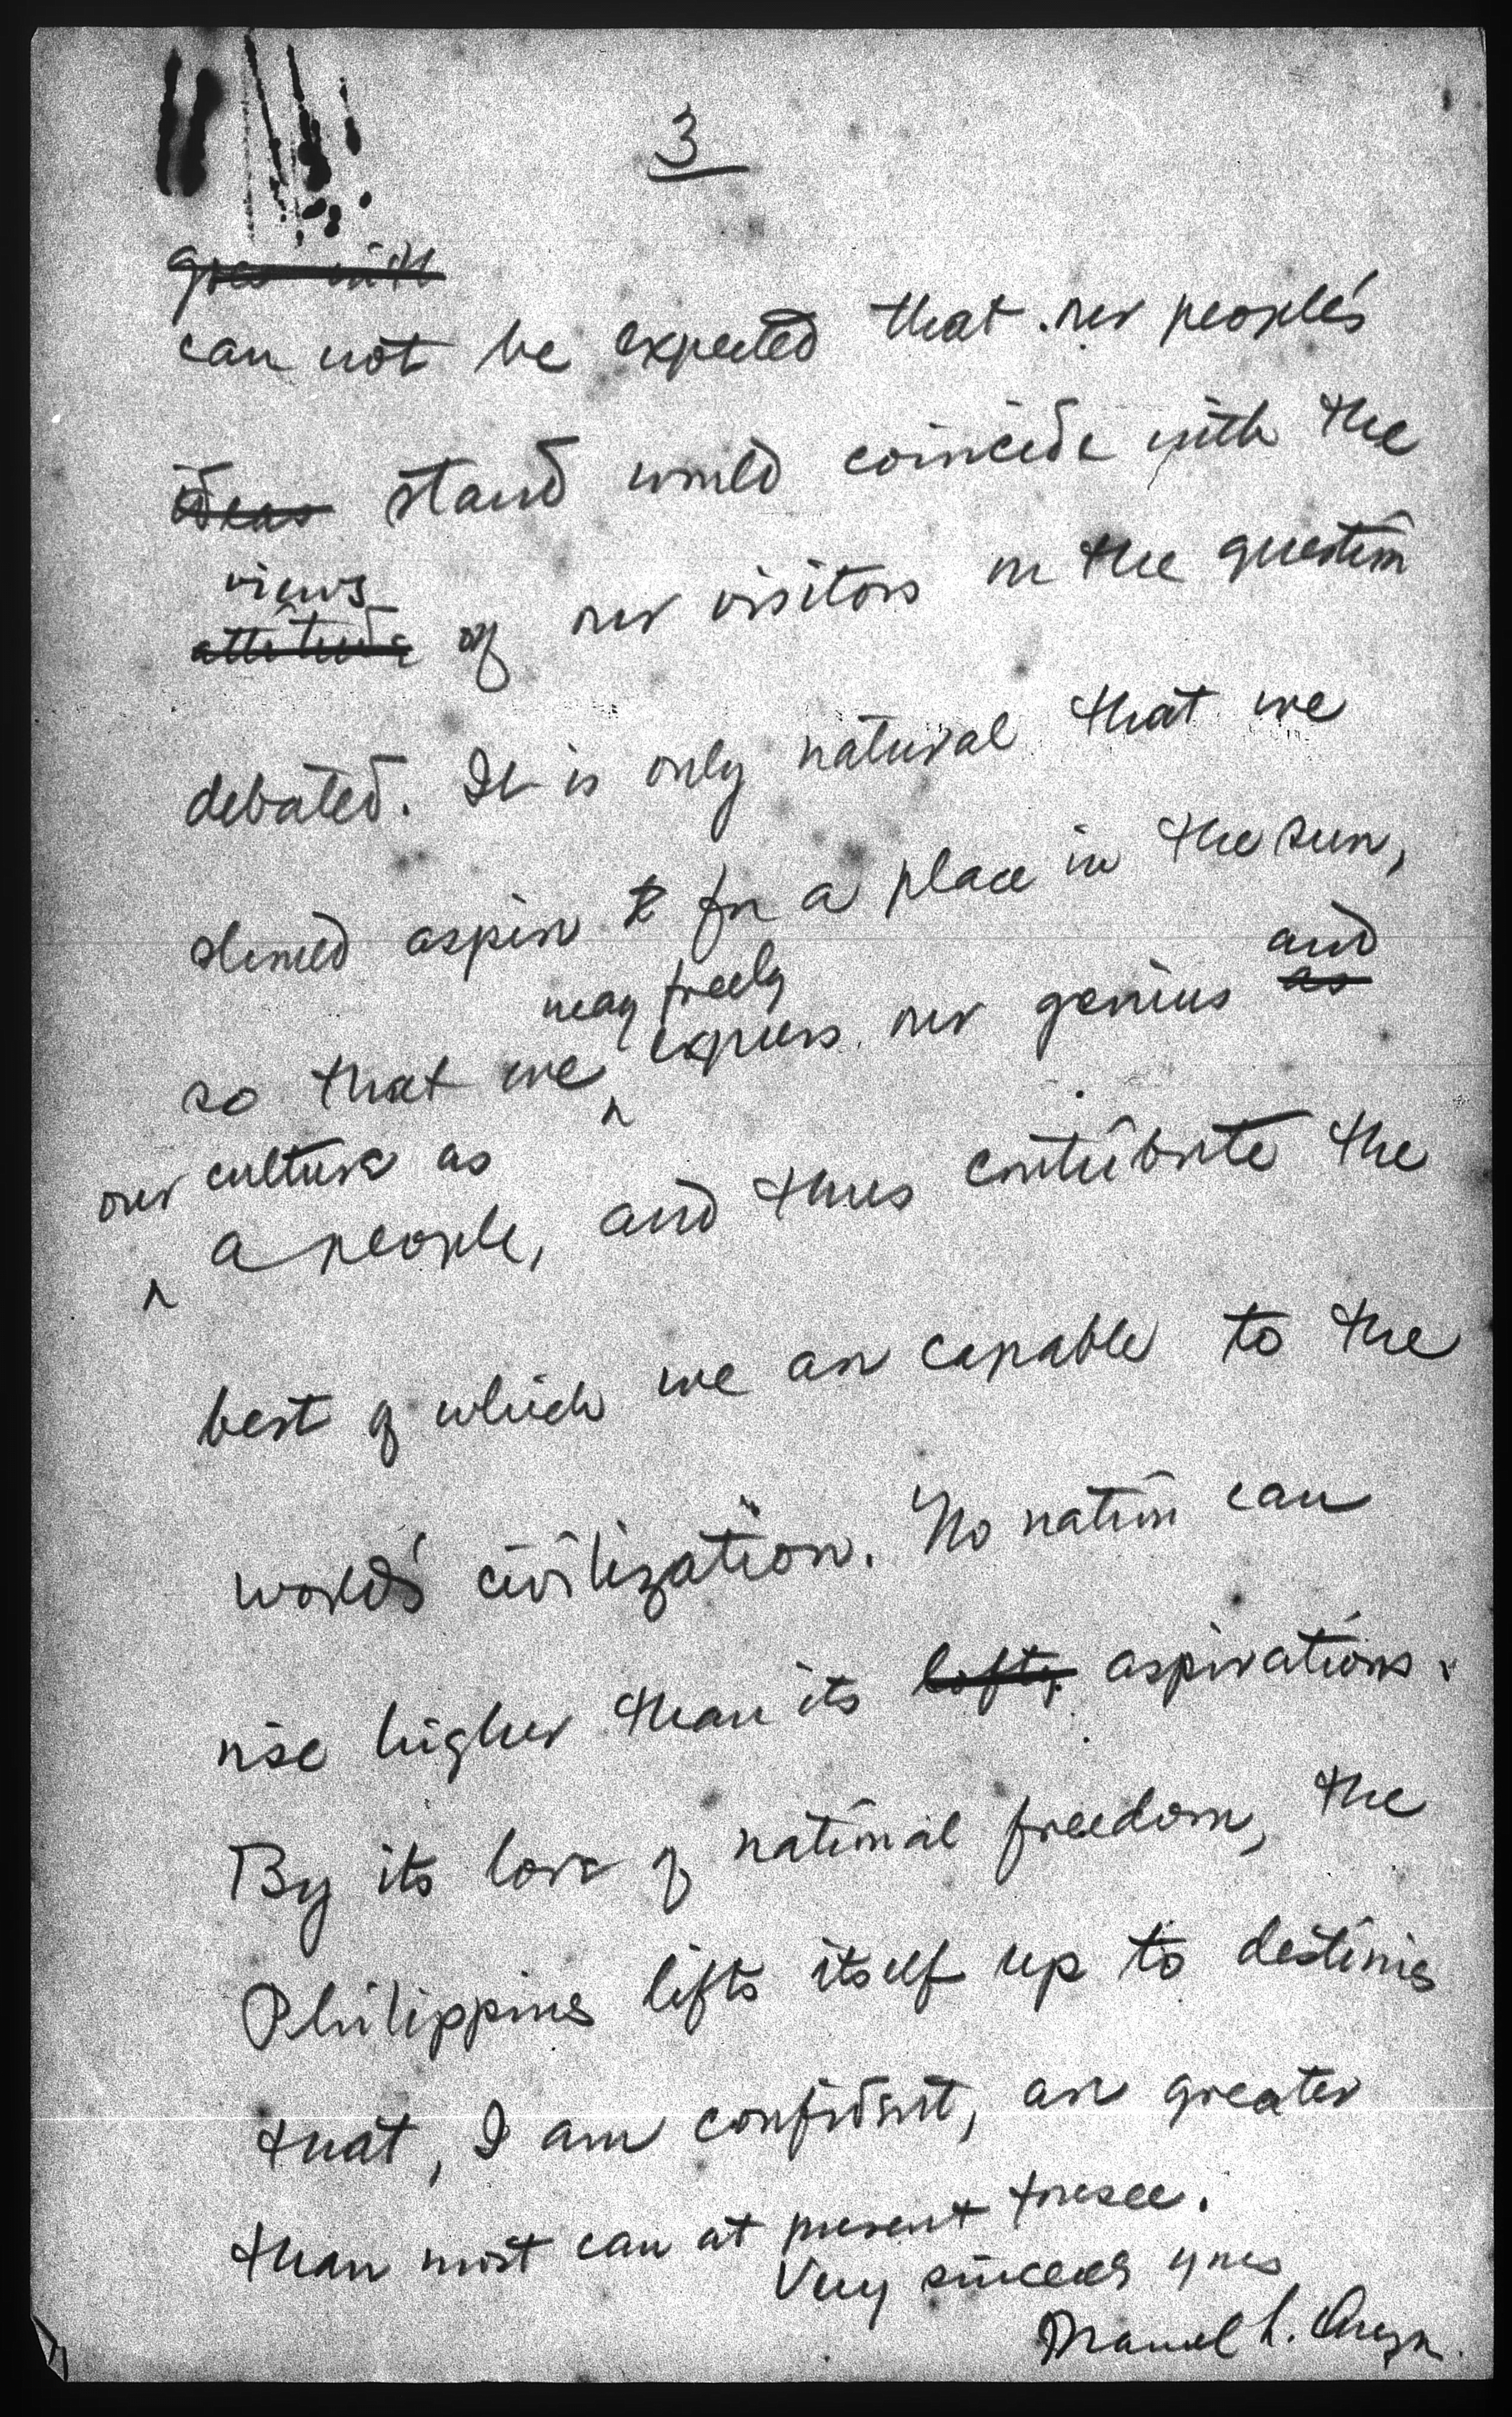 3
goes with
can not be expected that our people's
ideas stand would coincide with the
views
attitude of our visitors on the question
debated. It is only natural that we
should aspire t for a place in the sun,
and
may freely
so that we ^ express our genius as
our culture as
^ a people, and thus contribute the
best of which we are capable to the
world's civilization. No nation can
rise higher than its lofty aspirations.
By its love of national freedom, the
Philippines lifts itself up to destinies
that, I am confident, are greater
than most can at present foresee.
Very sincerely yours
Manuel L. Quezon.